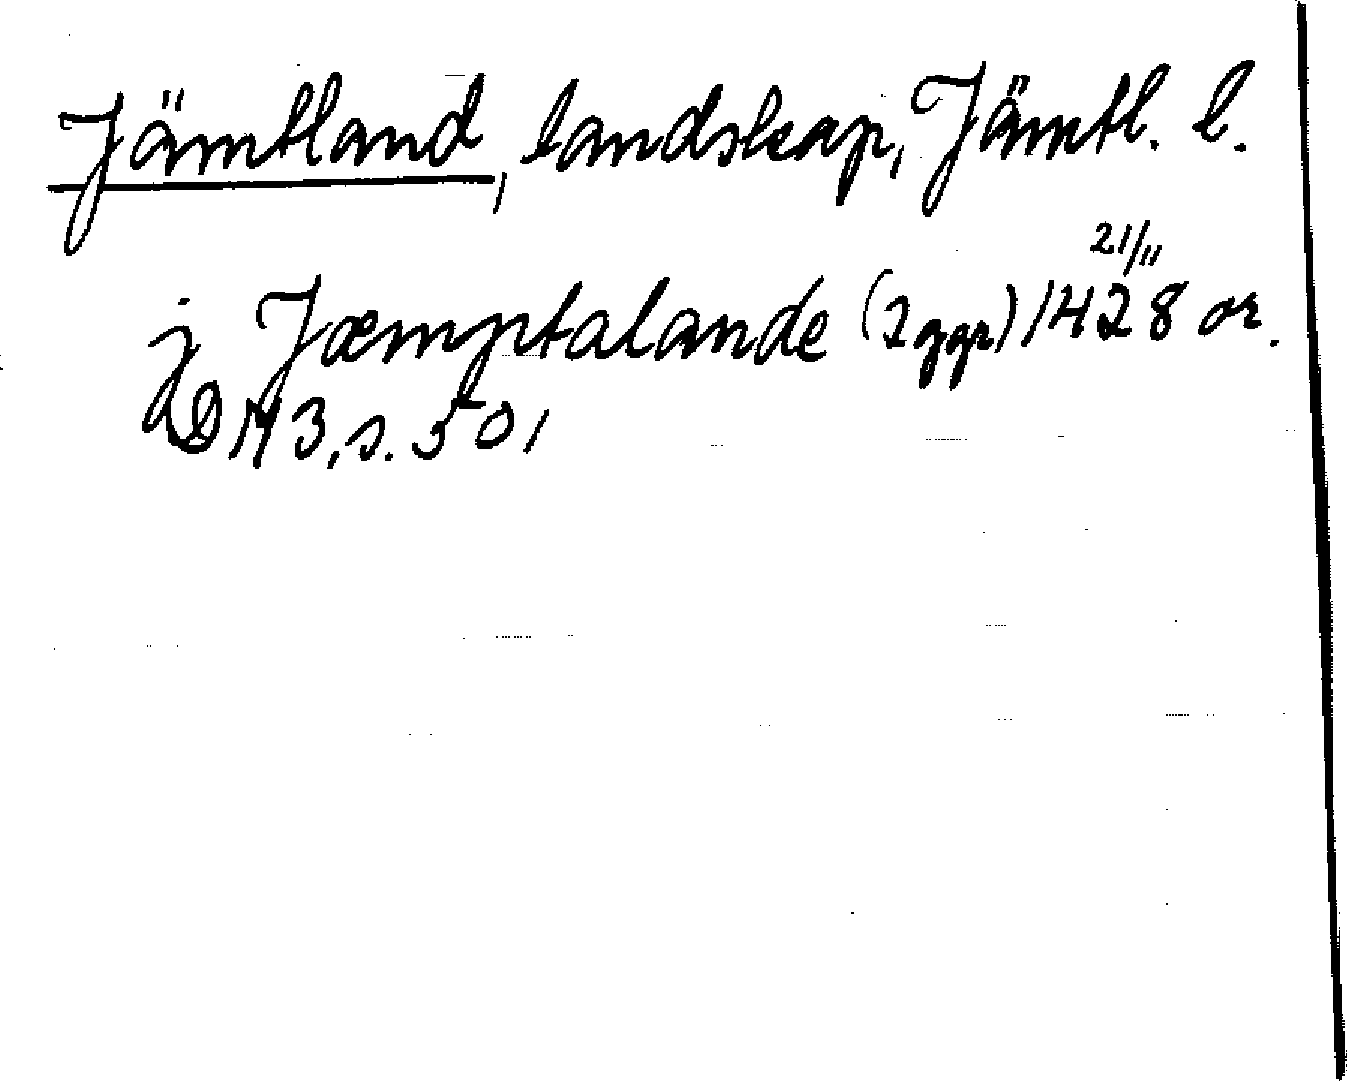 Jämtland, landskap, Jämtl. l.
j Jæmptalande (2 ggr) 1428 21/11 or.
DN 3, s. 501